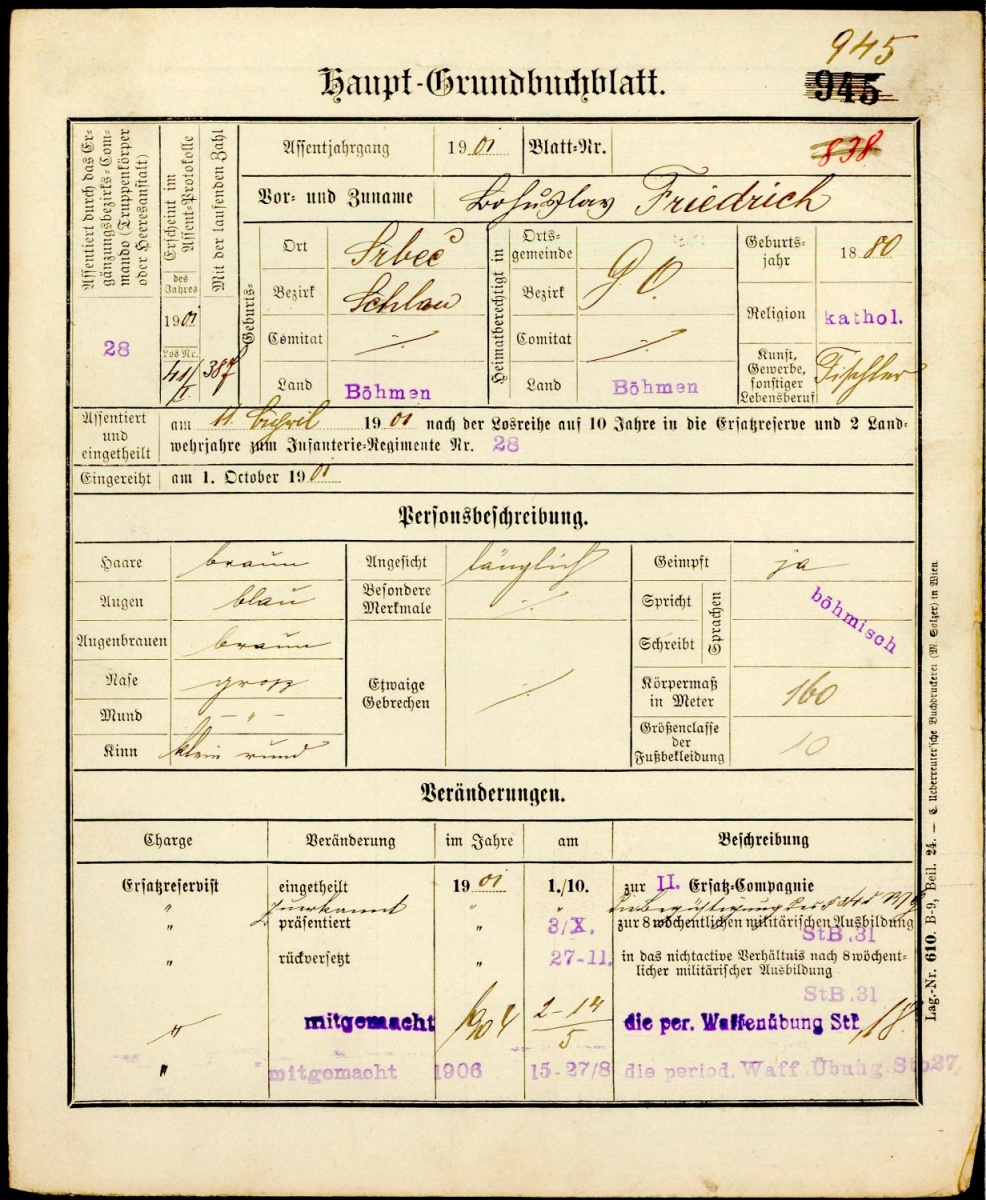 945
Haupt-Grundbuchblatt.
945
Assentiert durch das Ergänzungsbezirks-Commando (Truppenkörper oder Heeresanstalt)
28
Erscheint im Assent-Protokolle
des Jahres
1901
Los Nr.
41/I
Mit der laufenden Zahl
387
Assentjahrgang 1901 Blatt-Nr. 838
Vor- und Zuname Bohuslav Friedrich
Geburts-
Ort Srbeč
Bezirk Schlan
Comitat ·/·
Land Böhmen
Heimatberechtigt in
Ortsgemeinde
Bezirk
G O.
Comitat ·/·
Land Böhmen
Geburtsjahr 1880
Religion kathol.
Kunst, Gewerbe, sonstiger Lebensberuf Tischler
Assentiert und eingetheilt
am 11. April 1901 nach der Losreihe auf 10 Jahre in die Ersatzreserve und 2 Land-
wehrjahre zum Infanterie-Regimente Nr. 28
Eingereiht am 1. October 1901
Personsbeschreibung.
Haare braun
Augen blau
Augenbrauen braun
Nase gross
Mund – " –
Kinn klein rund
Angesicht länglich
Besondere Merkmale ·/·
Etwaige Gebrechen ·/·
Geimpft ja
Spricht
Schreibt
Sprachen
böhmisch
Körpermaß in Meter 160
Größenclasse der Fußbekleidung 10
Veränderungen.
Charge Veränderung im Jahre am Beschreibung
Ersatzreservist eingetheilt 1901 1./10. zur II. Ersatz-Compagnie
" zuerkannt " " die Begünstigung des § 34 d. W.G.
" präsentiert " 3/X. zur 8 wöchentlichen militärischen Ausbildung
StB.31
" rückversetzt " 27-11. in das nichtactive Verhältnis nach 8 wöchent-
licher militärischer Ausbildung
StB.31
" mitgemacht 1904 2-14/5 die per. Waffenübung StB 18.
" mitgemacht 1906 15-27/8 die period. Waff. Übung. Stb27.
Lag.-Nr. 610. B-9, Beil. 24. — C. Ueberreuter'sche Buchdruckerei (M. Salzer) in Wien.